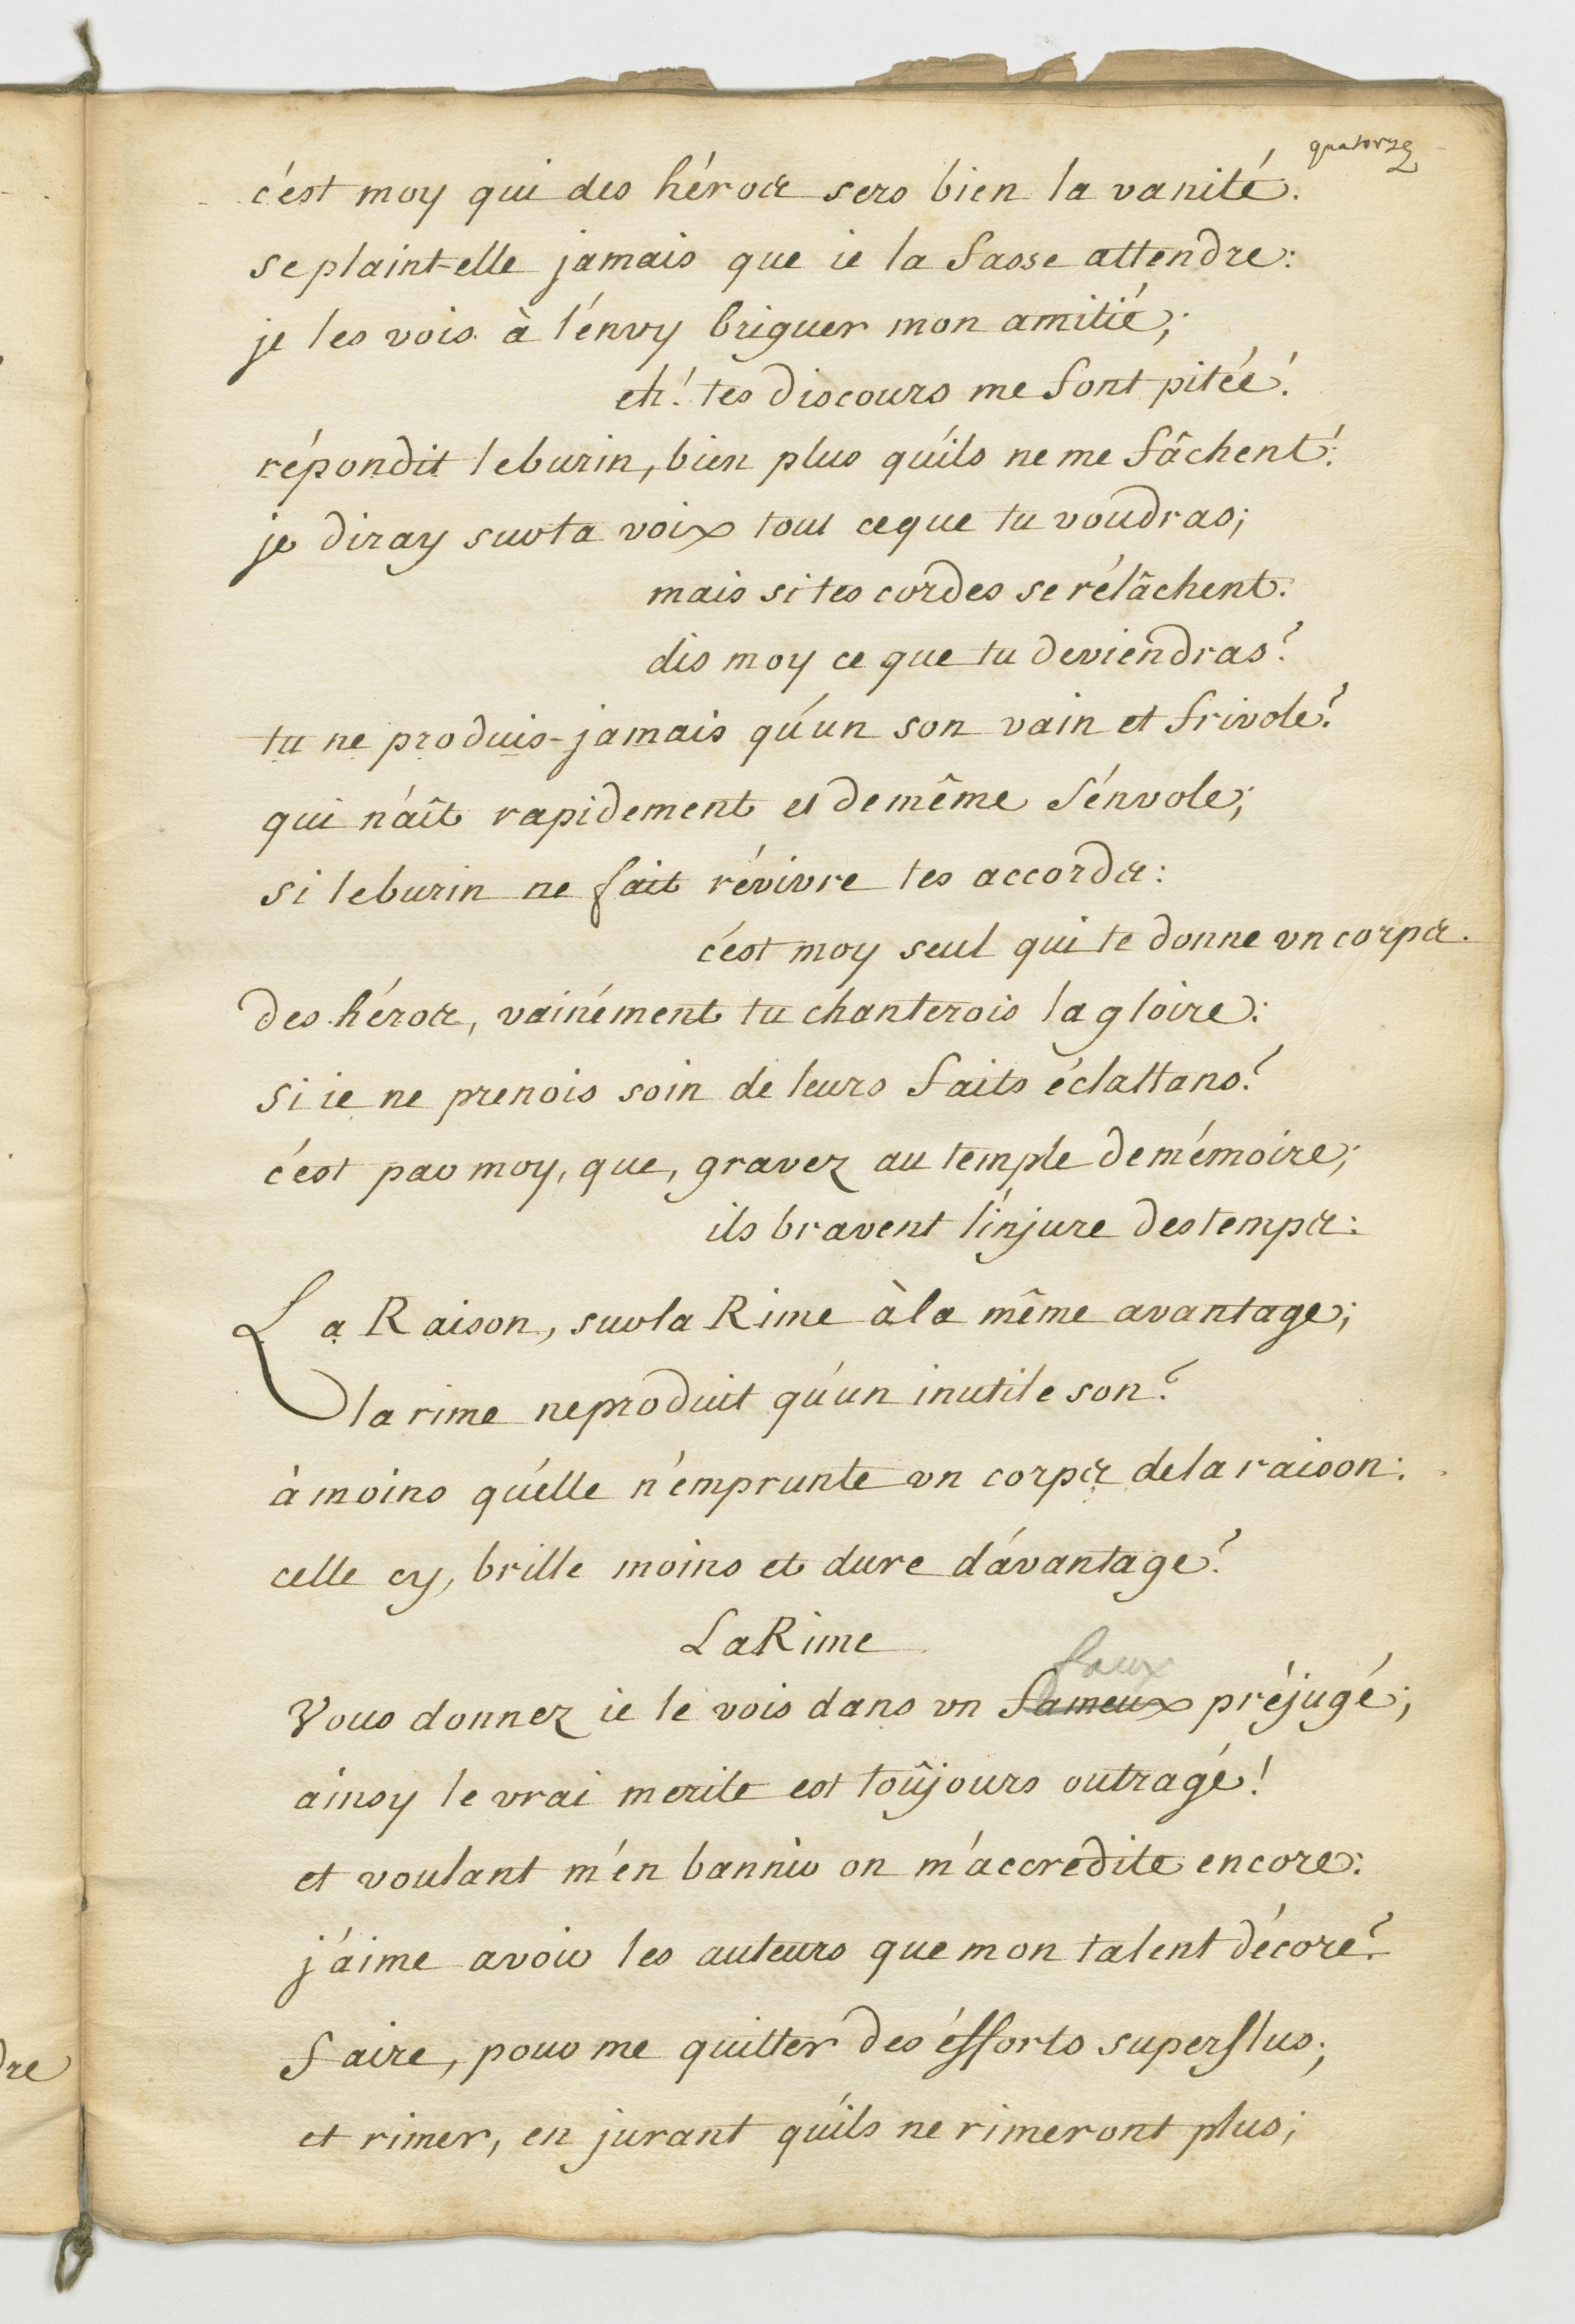 quatorze
c'est moy qui des héros sers bien la vanité.
se plaint-elle jamais que ie la fasse attendre:
je les vois à l'énvy briguer mon amitié;
eh! tes discours me font pitéé!
répondit leburin, bien plus qu'ils ne me fâchent!
je diray sur ta voix tout ceque tu voudras;
mais si tes cordes se rélâchent:
dis moy ce que tu deviendras?
tu ne produis-jamais qu'un son vain et frivole?
qui n'aît rapidement et demême s'énvole;
si leburin ne fait révivre tes accords:
c'est moy seul qui te donne vn corps.
des héros, vainément tu chanterois la gloire:
si ie ne prenois soin de leurs faits éclattans?
c'est par moy, que, gravez au temple demémoire;
ils bravent l'injure destemps:
La Raison, sur la Rime à la même avantage;
la rime neproduit qu'un inutile son?
à moins qu'elle n'emprunte vn corps dela raison:
celle cy, brille moins et dure d'ávantage?
LaRime
faux
Vous donnez ie le vois dans vn fameux préjugé;
ainsy le vrai merite est toûjours outragé!
et voulant m'én bannir on m'accredite encore:
j'aime avoir les auteurs que mon talent décore?
faire, pour me quitter des éfforts superflus;
et rimer, en jurant qu'ils ne rimeront plus;
dre